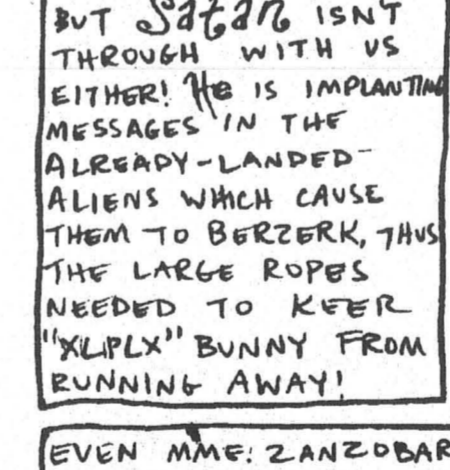 BUT Satan ISN'T
THROUGH WITH US
EITHER! He IS IMPLANTING
MESSAGES IN THE
ALREADY-LANDED-
ALIENS WHICH CAUSE
THEM TO BERZERK, THUS
THE LARGE ROPES
NEEDED TO KEER
"XLIPLX" BUNNY FROM
RUNNING AWAY!
EVEN MME. ZANZOBAR